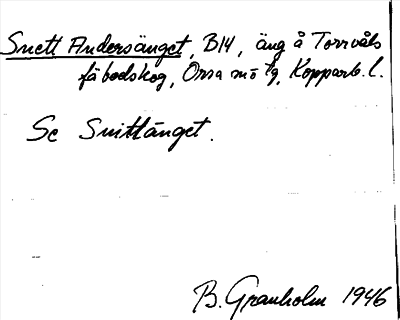 Snett Andersänget, B14, äng å Torrvåls
fäbodskog, Orsa sn o tg, Kopparb. l.
Se Snittänget.
B. Granholm 1946